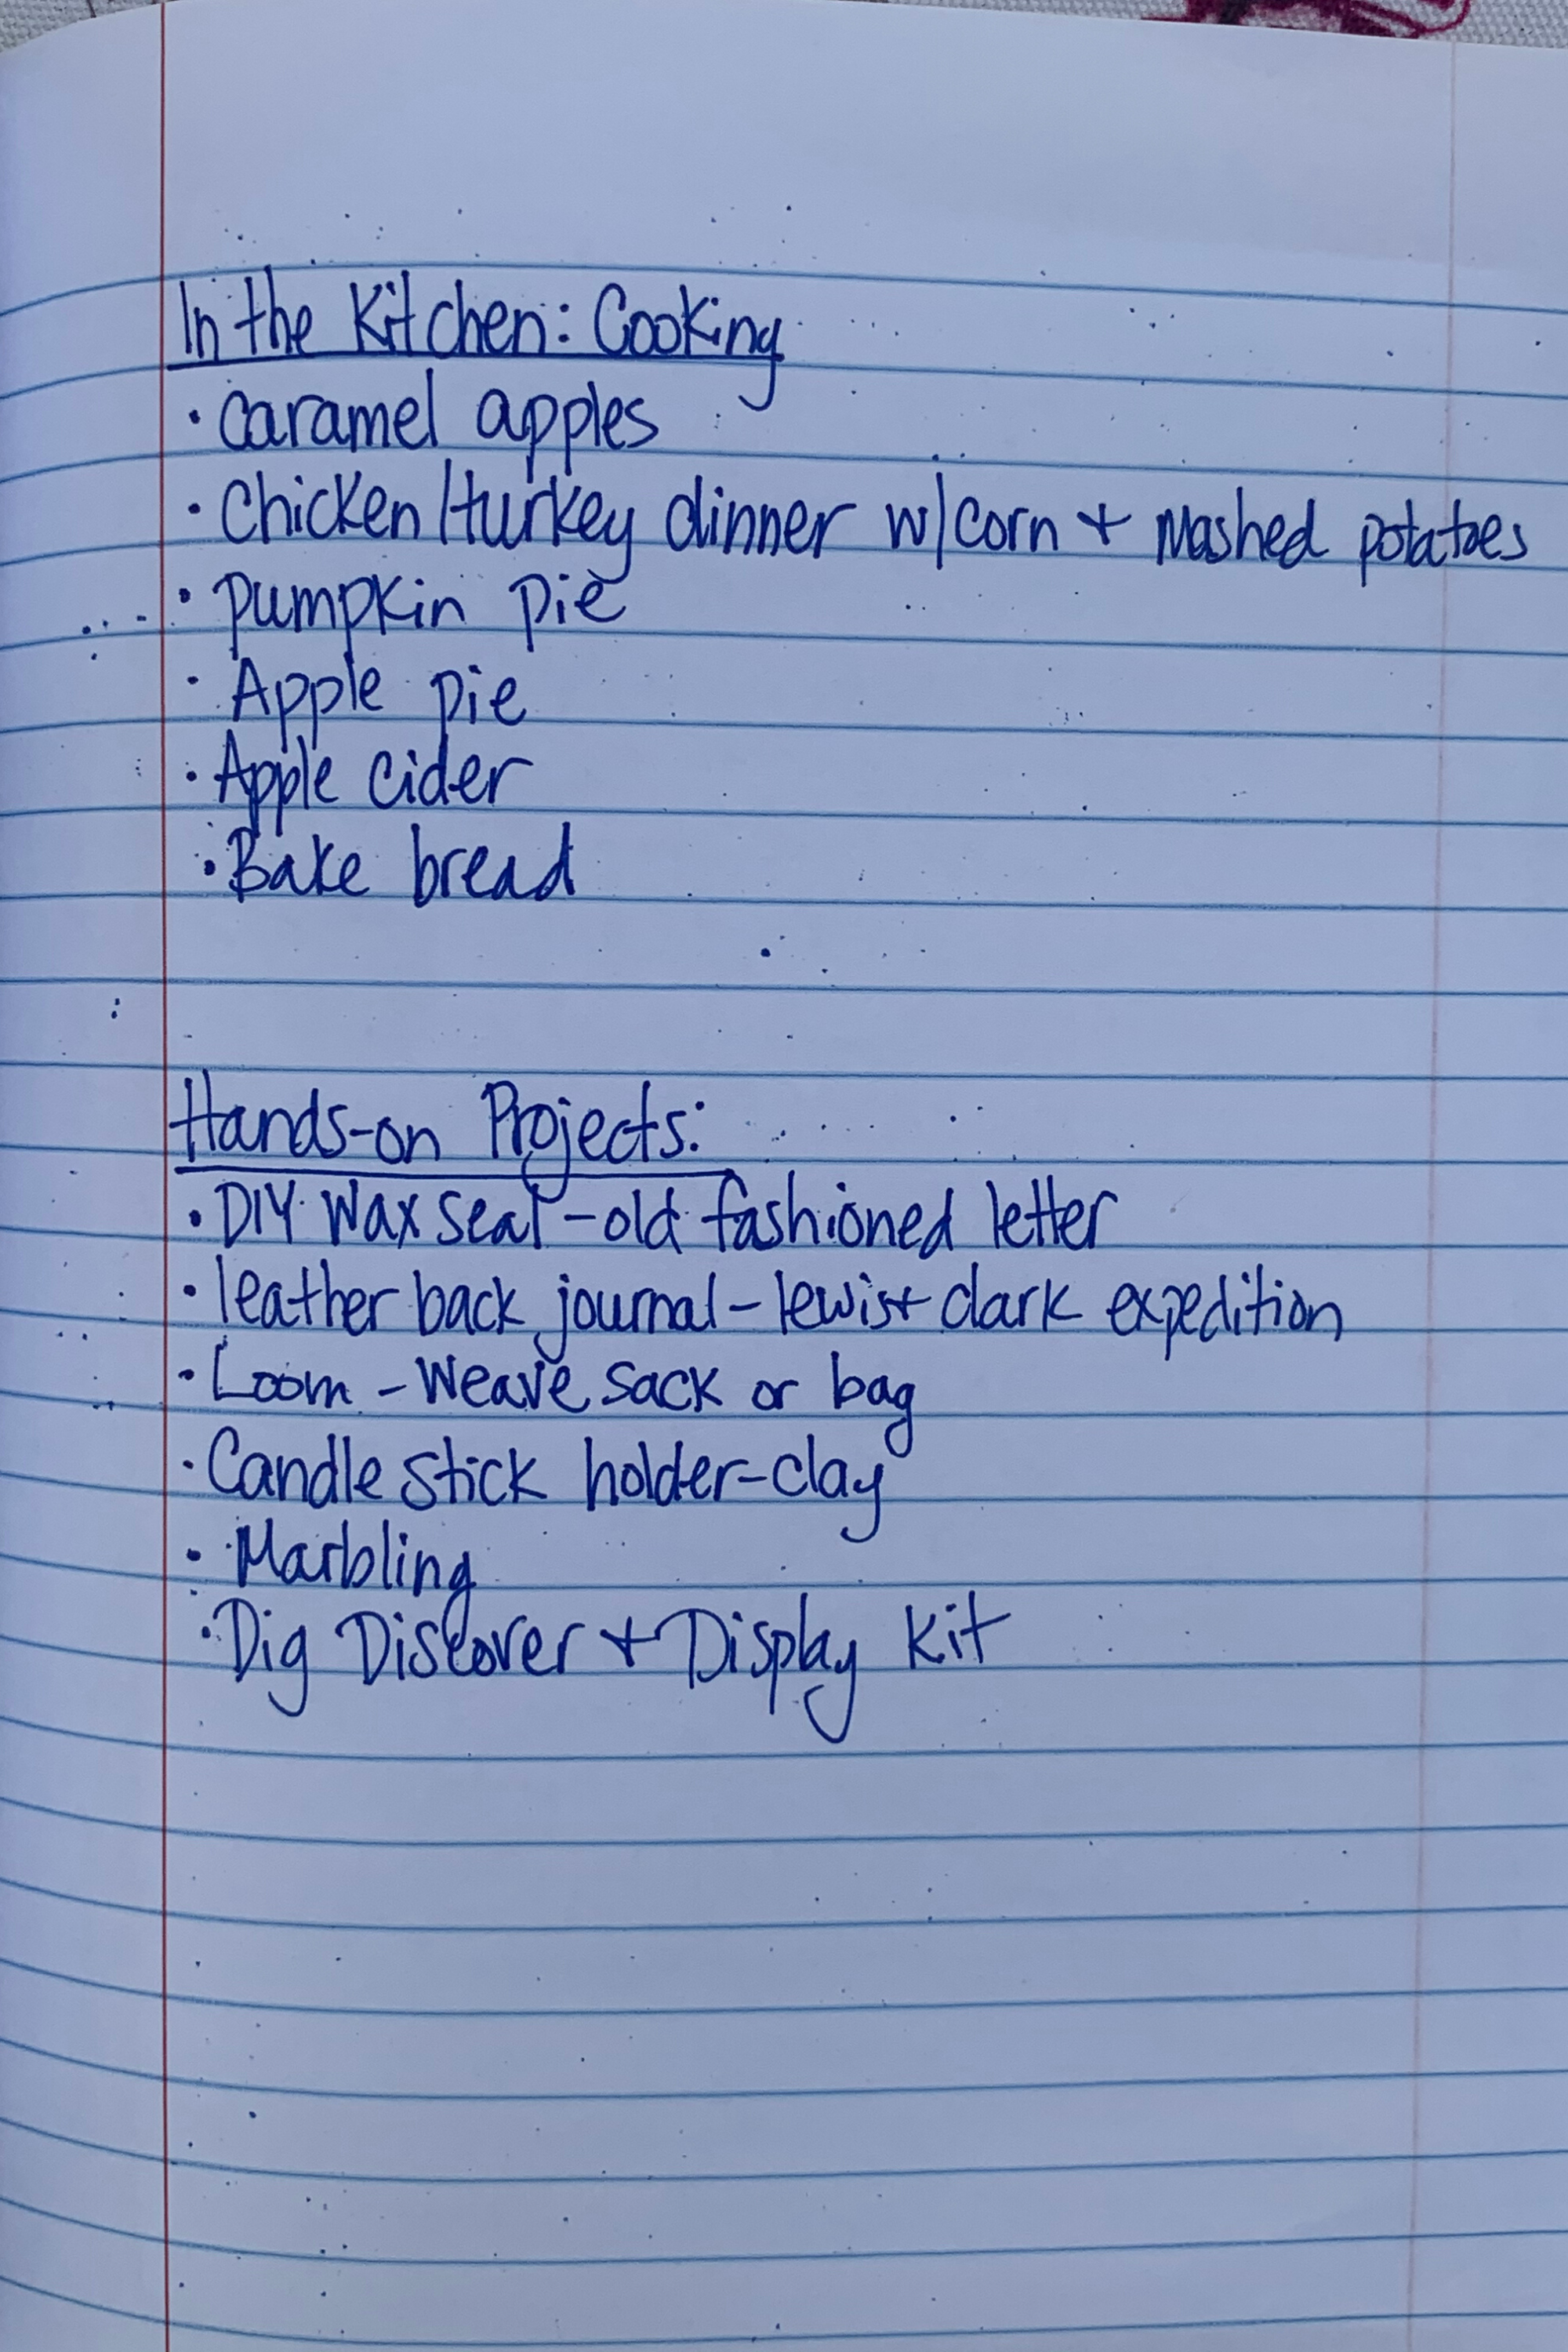 In the Kitchen: Cooking
· caramel apples
· Chicken/turkey dinner w/corn + mashed potatoes
· pumpkin pie
· Apple pie
· Apple cider
· Bake bread
Hands-on Projects:
· DIY Wax seal - old fashioned letter
· leather back journal - lewis + clark expedition
· Loom - Weave sack or bag
· Candle stick holder - clay
· Marbling
· Dig Discover + Display Kit